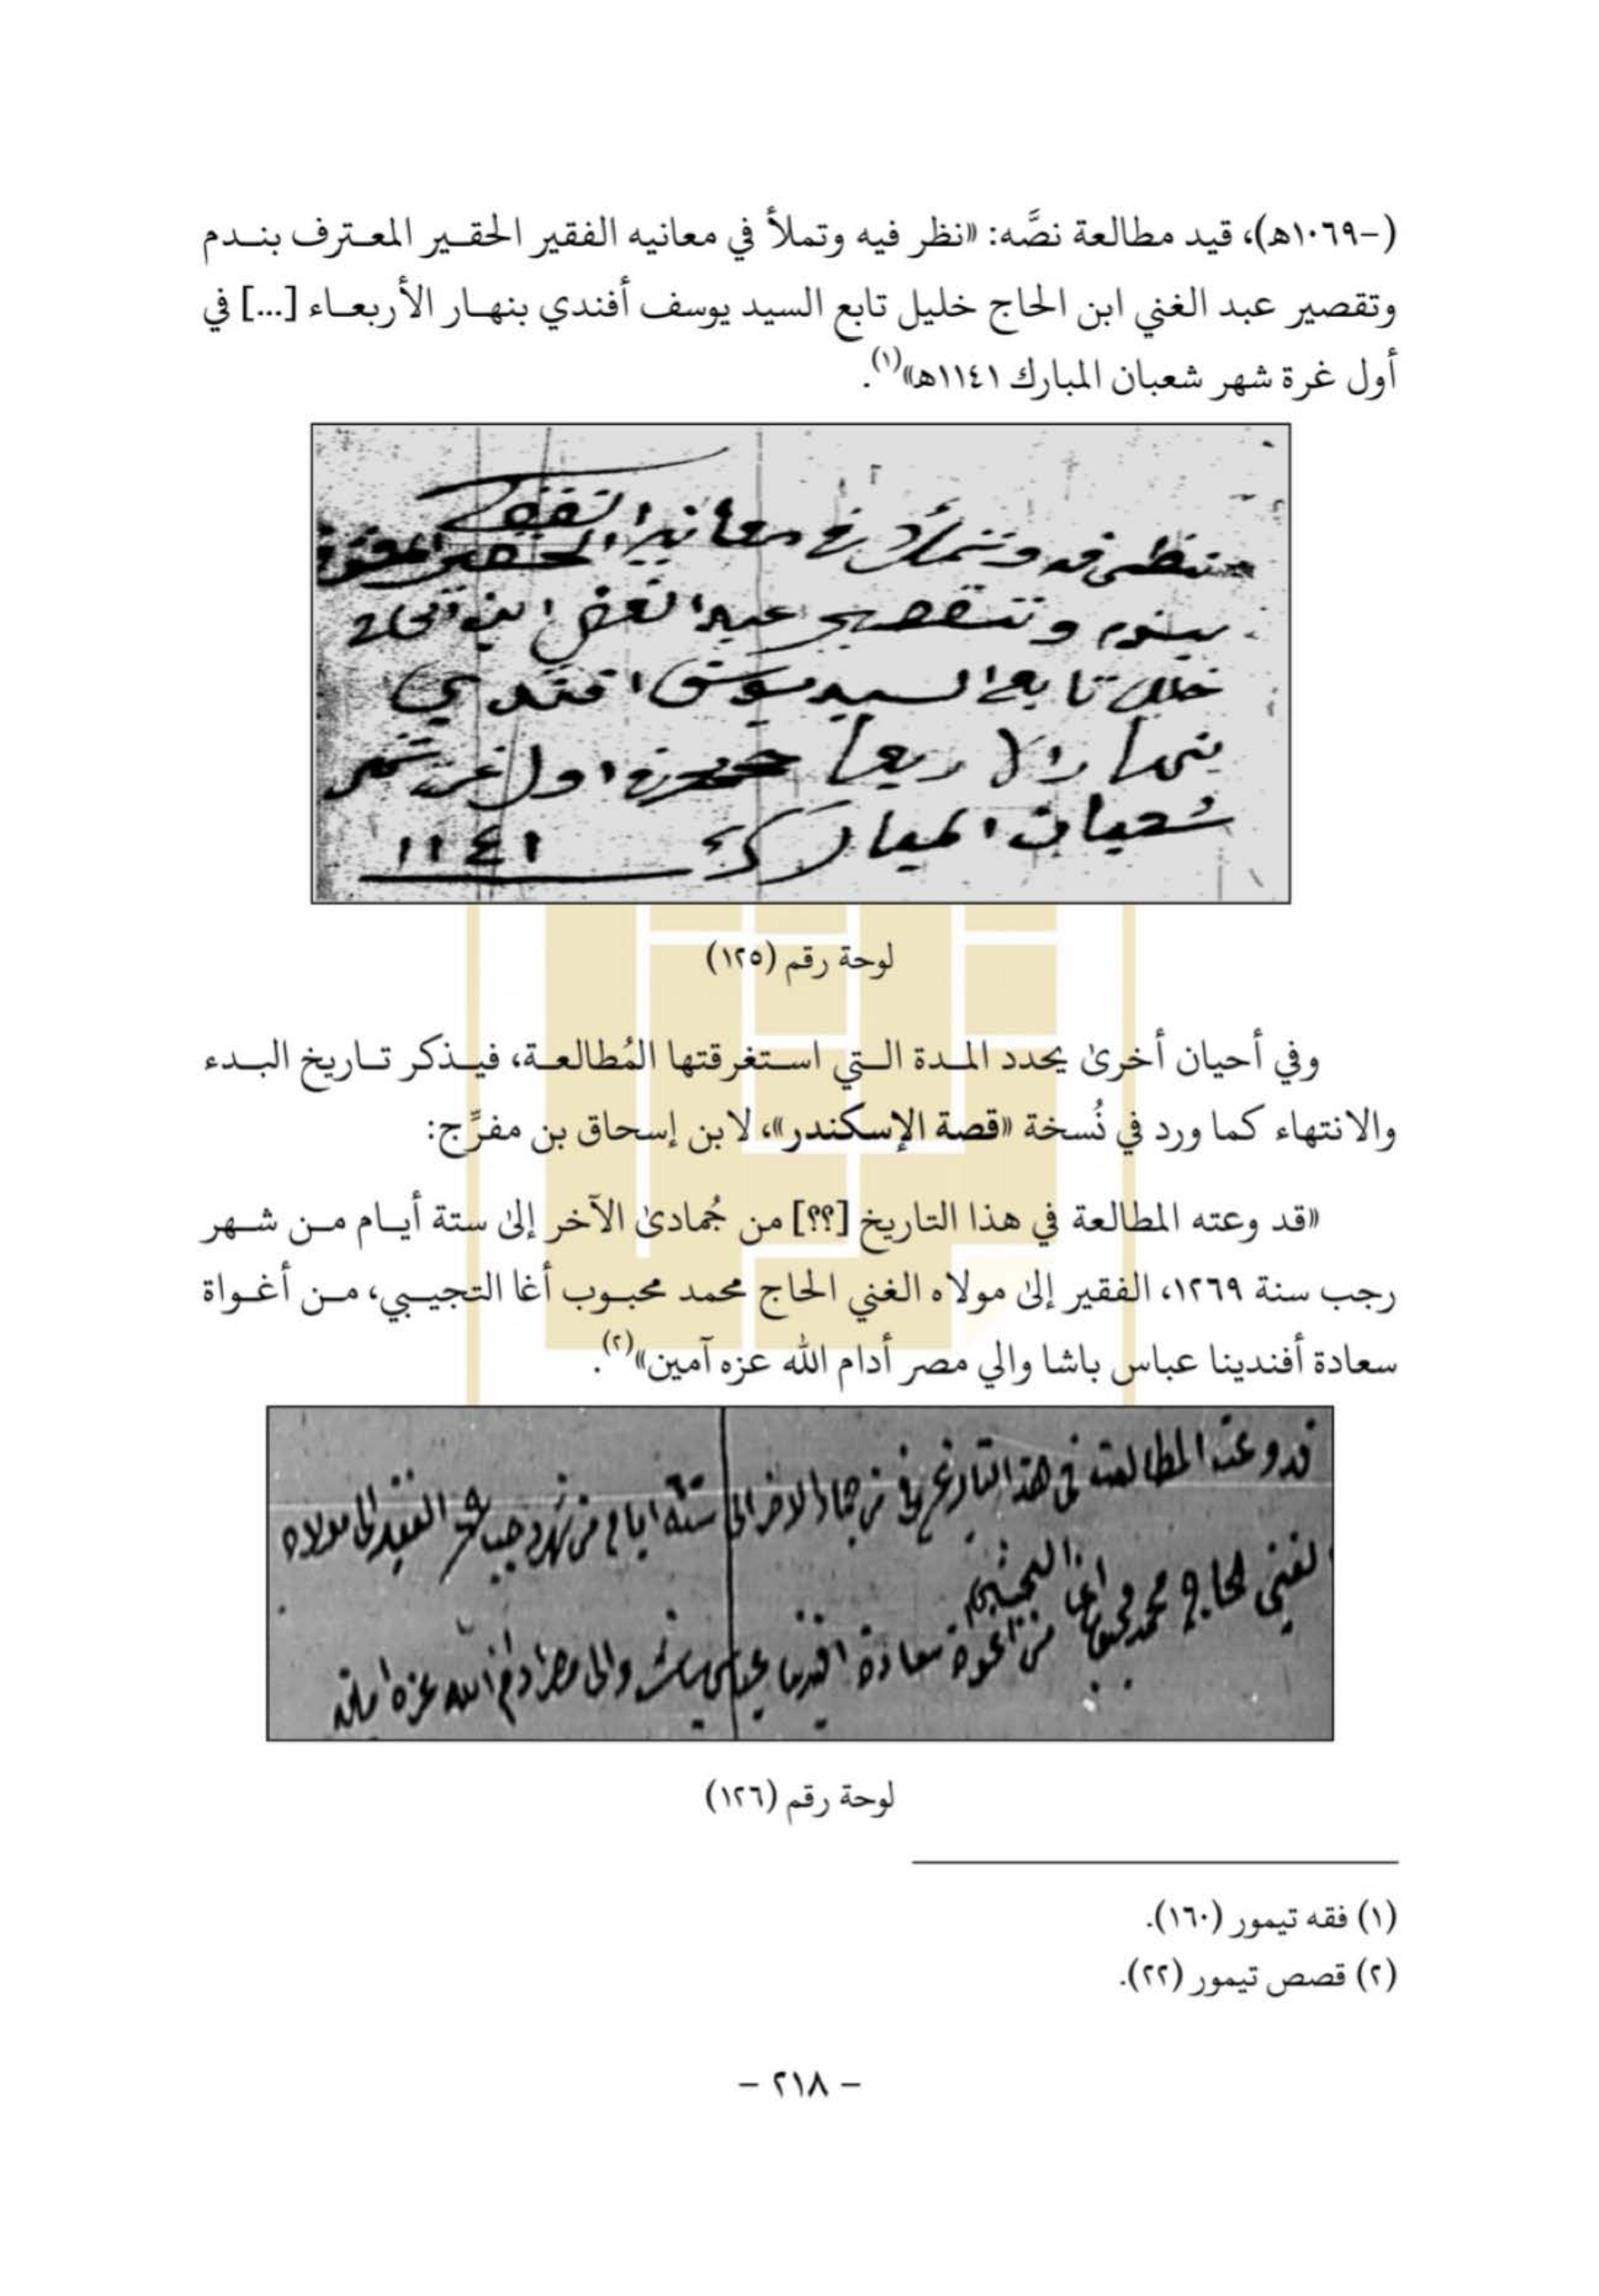 (-١٠٦٩هـ)، قيد مطالعة نصَّه: «نظر فيه وتملأ في معانيه الفقير الحقير المعترف بندم
وتقصير عبد الغني ابن الحاج خليل تابع السيد يوسف أفندي بنهار الأربعاء [...] في
أول غرة شهر شعبان المبارك ١١٤١هـ»(١).
نظر فيه وتملأ في معانيه الفقير
الحقير المعترف
بندم وتقصير عبد الغني ابن الحاج
خليل تابع السيد يوسف افندي
بنهار الاربعا في اول غرة شهر
شعبان المبارك ١١٤١
لوحة رقم (١٢٥)
وفي أحيان أخرىٰ يحدد المدة التي استغرقتها المُطالعة، فيذكر تاريخ البدء
والانتهاء كما ورد في نُسخة «قصة الإسكندر»، لابن إسحاق بن مفرِّج:
«قد وعته المطالعة في هذا التاريخ [؟؟] من جُمادىٰ الآخر إلىٰ ستة أيام من شهر
رجب سنة ١٢٦٩، الفقير إلىٰ مولاه الغني الحاج محمد محبوب أغا التجيبي، من أغواة
سعادة أفندينا عباس باشا والي مصر أدام الله عزه آمين»(٢).
قد وعته المطالعة في هذا التاريخ من جماد الاخر الى ستة ايام من شهر رجب الفقير الى مولاه
الغني الحاج محمد محبوب اغا
من اغوة سعادة افندينا عباس باشا والى مصر ادام الله عزه امين
لوحة رقم (١٢٦)
(١) فقه تيمور (١٦٠).
(٢) قصص تيمور (٢٢).
– ٢١٨ –